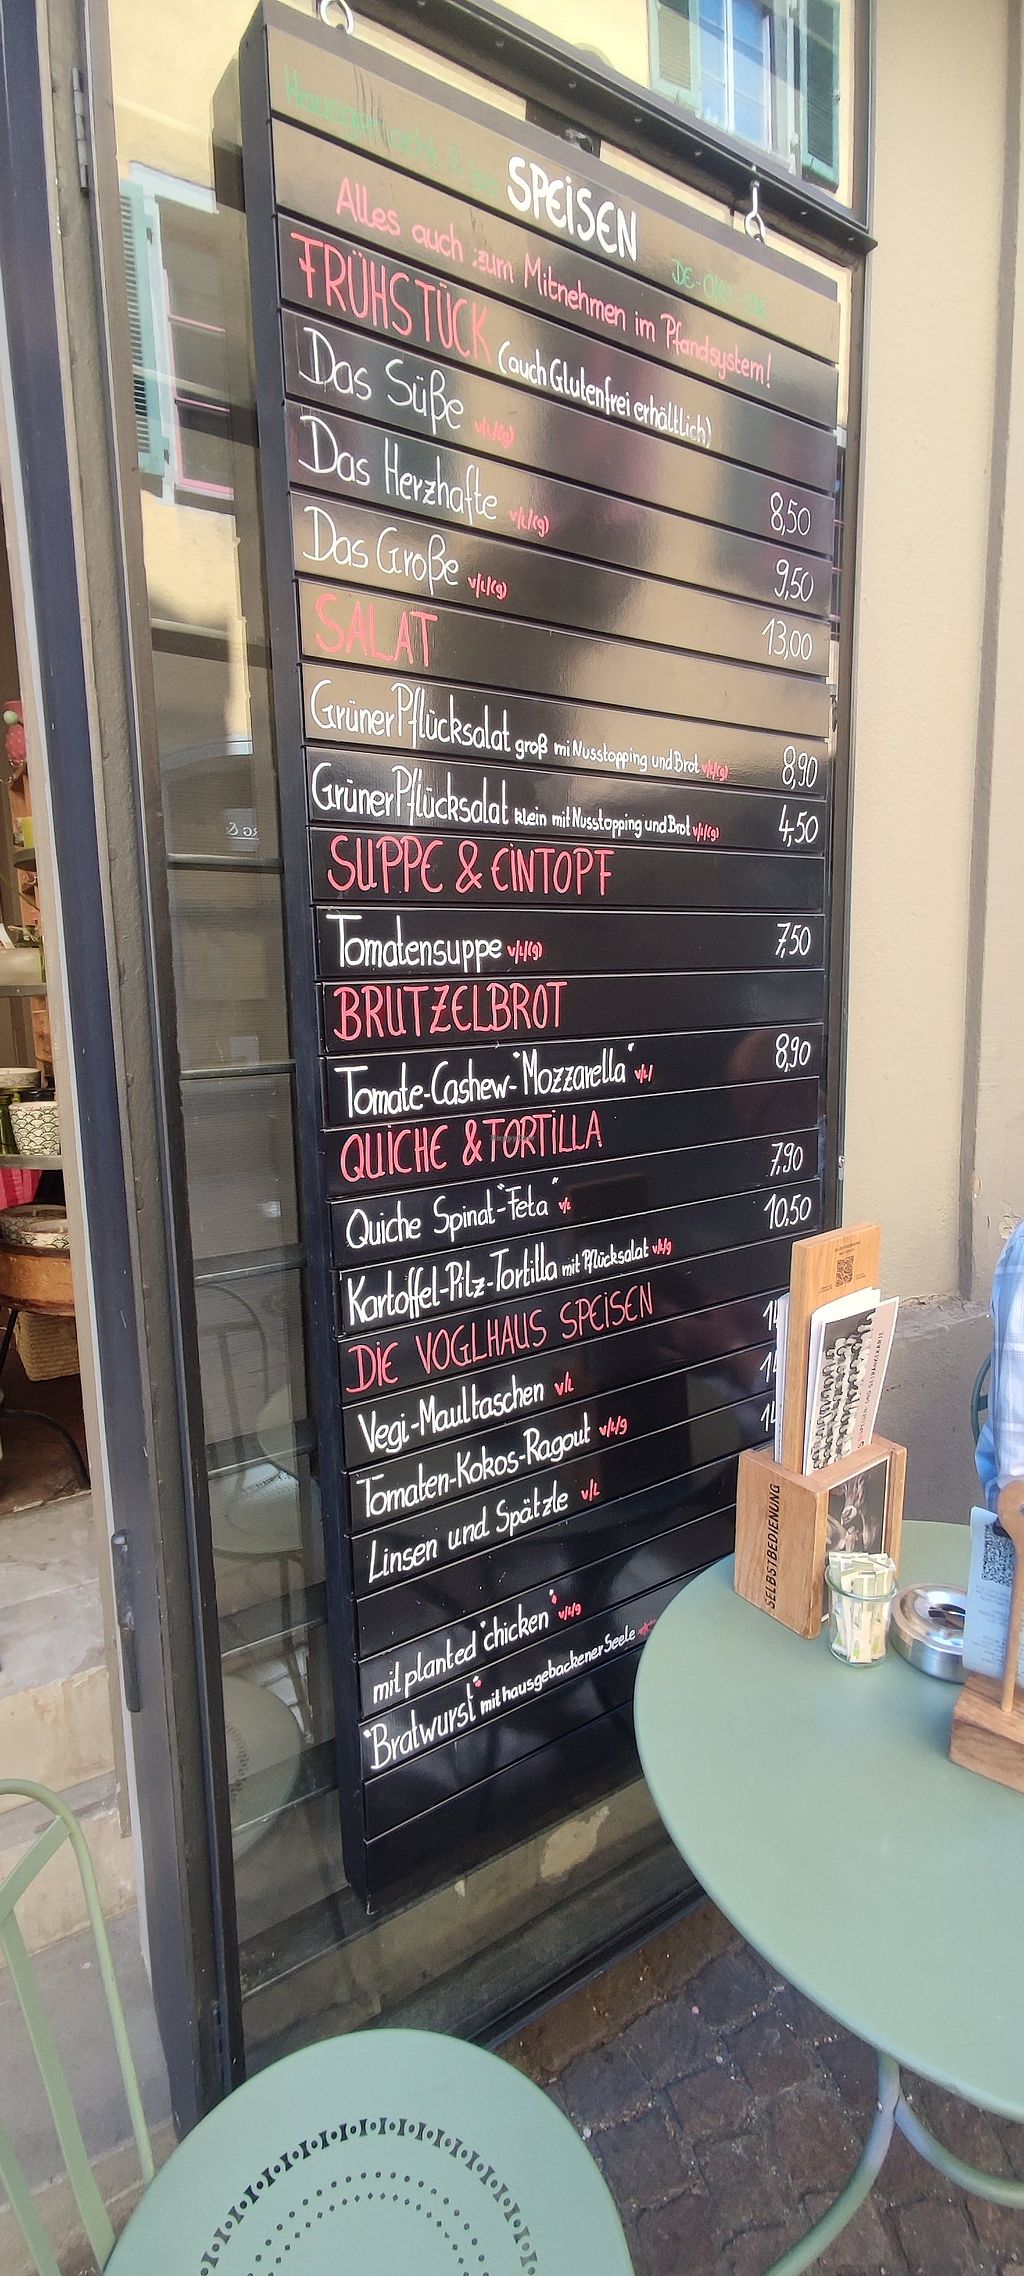 SPEISEN
DE-ÖKO-
Alles auch zum Mitnehmen im Pfandsystem!
FRÜHSTÜCK (auch Glutenfrei erhältlich)
Das Süße v/L/(g) 8,50
Das Herzhafte v/L/(g) 9,50
Das Große v/L/(g) 13,00
SALAT
Grüner Pflücksalat groß mi Nusstopping und Brot v/L/(g) 8,90
Grüner Pflücksalat klein mit Nusstopping und Brot v/L/(g) 4,50
SUPPE & EINTOPF
Tomatensuppe v/L/(g) 7,50
BRUTZELBROT
Tomate-Cashew-"Mozzarella" v/L/ 8,90
QUICHE & TORTILLA
Quiche Spinat-"Feta" v/L 7,90
Kartoffel-Pilz-Tortilla mit Pflücksalat v/L/g 10,50
DIE VOGLHAUS SPEISEN
Vegi-Maultaschen v/L 14
Tomaten-Kokos-Ragout v/L/g 14
Linsen und Spätzle v/L 14
mit planted "chicken" v/L/g
"Bratwurst" mit hausgebackener Seele
SELBSTBEDIENUNG
SPEISEN UND GETRÄNKEKARTE